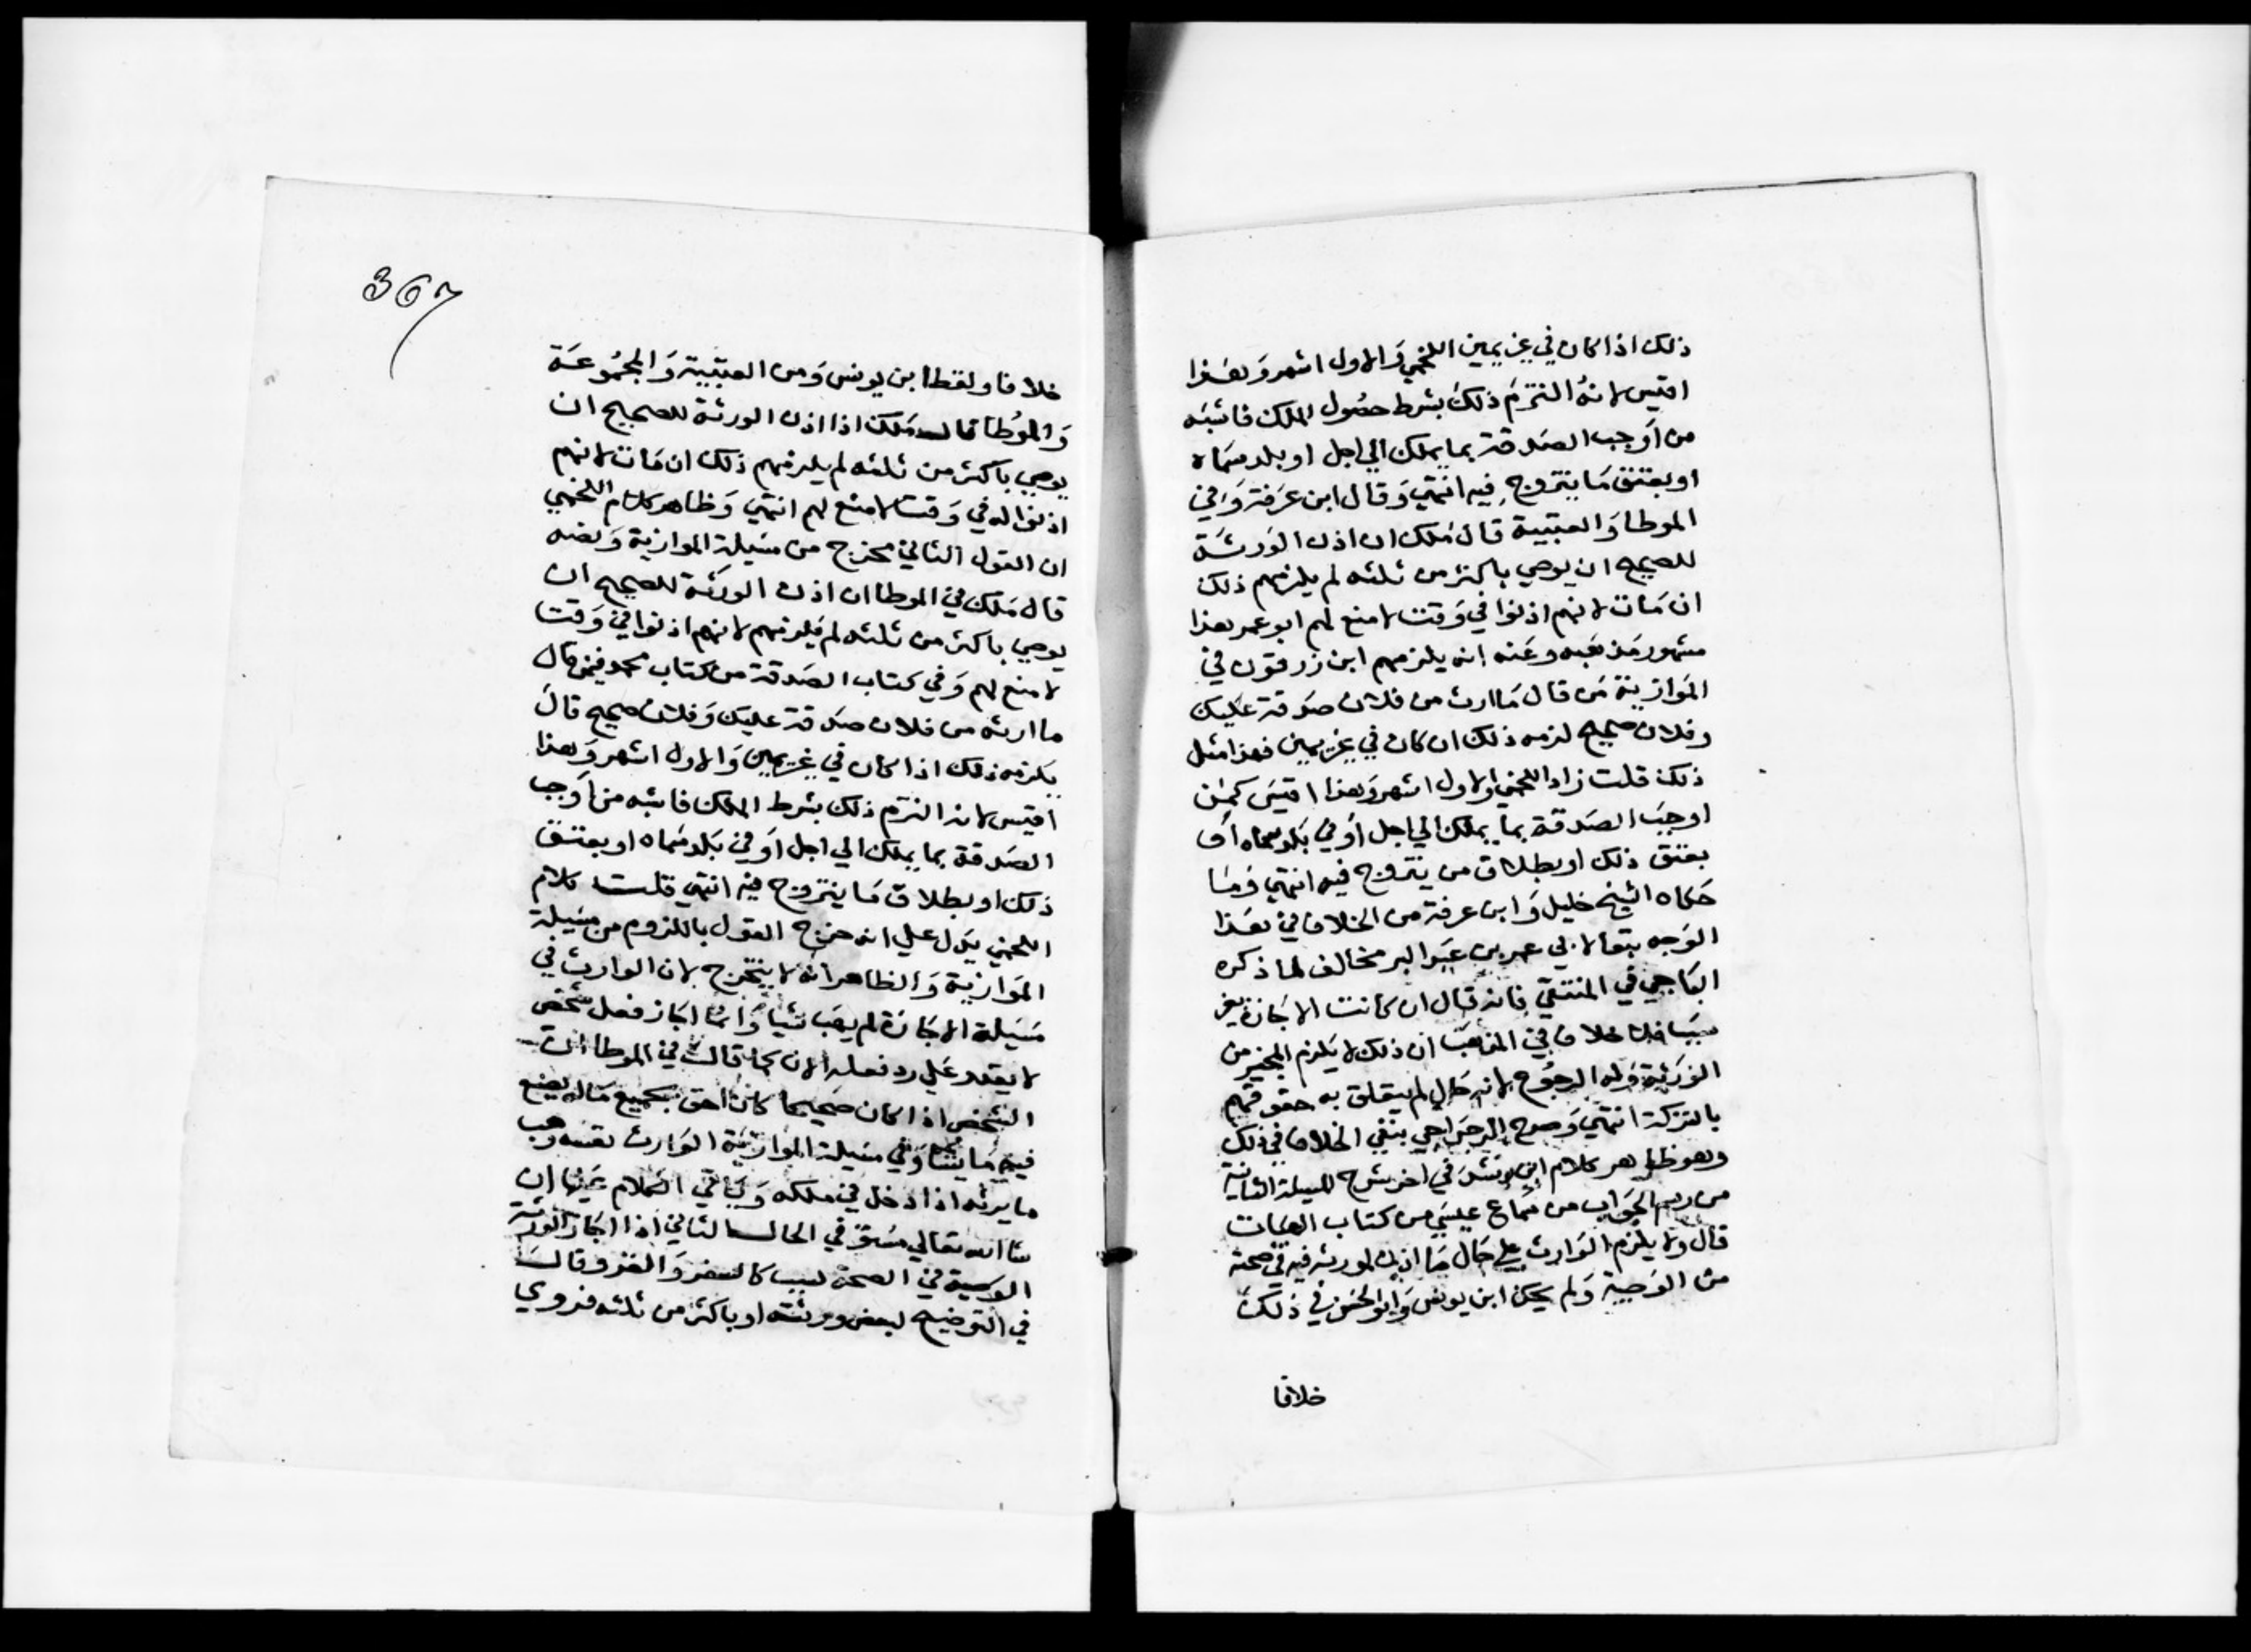 ذلك اذا كان في غير يمين اللخمي والاول اشهر وهذا
اقيس لانه التزم ذلك بشرط حصول الملك فاشبه
من اوجب الصدقة بما يملك الي اجل او بلد سماه
او بعتق ما يتزوج فيه انتهي وقال ابن عرفة وفي
الموطا والعتبية قال ملك ان اذن الورثة
للصحيح ان يوصي باكثر من ثلثه لم يلزمهم ذلك
ان مات لانهم اذنوا في وقت لا منع لهم ابو عمر هذا
مشهور مذهبه وعنه انه يلزمهم ابن زرقون في
الموازية من قال ما ارث من فلان صدقة عليك
وفلان صحيح لزمه ذلك ان كان في غير يمين فهذا مثل
ذلك قلت زاد اللخمي والاول اشهر وهذا اقيس كمن
اوجب الصدقة بما يملك الي اجل او في بلد سماه او
بعتق ذلك او بطلاق من يتزوج فيه انتهي وما
حكاه الشيخ خليل وابن عرفة من الخلاف في هذا
الوجه تبعا لابي عمر بن عبد البر مخالف لما ذكره
الباجي في المنتقي فانه قال ان كانت الاجازة بغير
سبب فلا خلاف في المذهب ان ذلك لا يلزم المجيز من
الورثة وله الرجوع لانه حال لم يتعلق به حقوقهم
بالتركة انتهي وصرح الرجراجي بنفي الخلاف في ذلك
وهو ظاهر كلام ابن رشد في اخر شرح المسيلة الثانية
من رسم الجواب من سماع عيسي من كتاب الهبات
قال ولا يلزم الوارث علي حال ما اذن لمورثه فيه في صحته
من الوصية ولم يحك ابن يونس وابو الحسن في ذلك
خلافا
367
خلافا ولفظ ابن يونس ومن العتبية والمجموعة
والموطا قال ملك اذا اذن الورثة للصحيح ان
يوصي باكثر من ثلثه لم يلزمهم ذلك ان مات لانهم
اذنوا له في وقت لا منع لهم انتهي وظاهر كلام اللخمي
ان القول الثاني مخرج من مسيلة الموازية ونصه
قال ملك في الموطا ان اذن الورثة للصحيح ان
يوصي باكثر من ثلثه لم يلزمهم لانهم اذنوا في وقت
لا منع لهم وفي كتاب الصدقة من كتاب محمد فيمن قال
ما ارثه من فلان صدقة عليك وفلان صحيح قال
يلزمه ذلك اذا كان في غير يمين والاول اشهر وهذا
اقيس لانه التزم ذلك بشرط الملك فاشبه من اوجب
الصدقة بما يملك الي اجل او في بلد سماه او بعتق
ذلك او بطلاق ما يتزوج فيه انتهي قلت كلام
اللخمي يدل علي انه خرج القول باللزوم من مسيلة
الموازية والظاهر انه لا يتخرج لان الوارث في
مسيلة الاجازة لم يهب شيا وانما اجاز فعل شخص
لا يقدر علي رد فعله الان كما قال في الموطا ان
الشخص اذا كان صحيحا كان احق بجميع ماله يصنع
فيه ما يشا وفي مسيلة الموازية الوارث نفسه وهب
ما يرثه اذا دخل في ملكه وياتي الكلام عليها ان
شا الله تعالي مستوفي الحال الثاني اذا اجاز الورثة
الوصية في الصحة لسبب كالسفر والغزو قال
في التوضيح لبعض ورثته او باكثر من ثلثه فروي